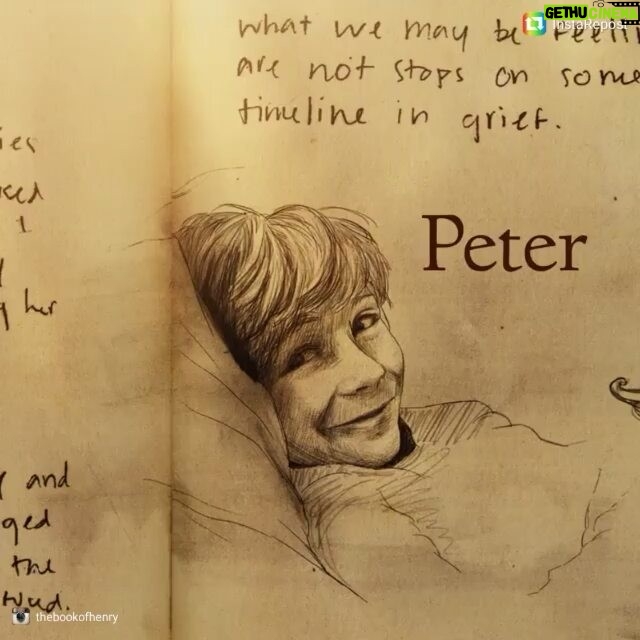 GETHU CINEMA
InstaRepost
what we may be feeli
are not stops on some
timeline in grief.
Peter
ies
ked
I
y
g her
y and
ged
the
thebookofhenry